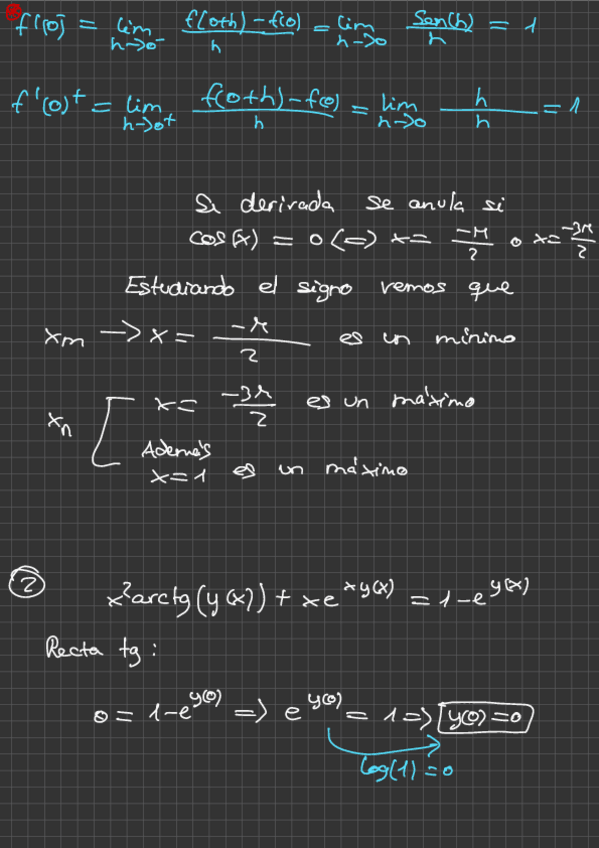 f'(0)⁻ = lim_{h→0⁻} (f(0+h) − f(0))/h = lim_{h→0} Sen(h)/h = 1
f'(0)⁺ = lim_{h→0⁺} (f(0+h) − f(0))/h = lim_{h→0} h/h = 1
Su derivada se anula si
cos(x) = 0 (=) x = −π/2 o x = −3π/2
Estudiando el signo vemos que
xm → x = −π/2 es un mínimo
x = −3π/2 es un máximo
xn
Además
x = 1 es un máximo
② x²arctg(y(x)) + xe^{xy(x)} = 1 − e^{y(x)}
Recta tg:
0 = 1 − e^{y(0)} => e^{y(0)} = 1 => y(0) = 0
log(1) = 0